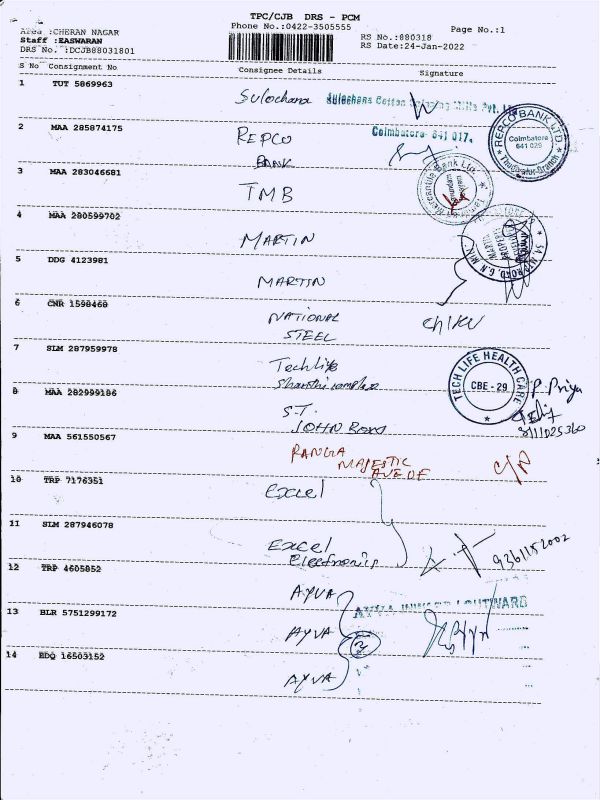 TPC/CJB DRS - PCM
Phone No.:0422-3505555
Page No.:1
Area :CHERAN NAGAR
Staff :EASWARAN
DRS No. :DCJB88031801
RS No.:880318
RS Date:24-Jan-2022
S No Consignment No Consignee Details Signature
1 TUT 5869963 Sulochana
Sulochana Cotton Spinning Mills Pvt. Lt
Coimbatore 641 017.
2 MAA 285874175 REPCO
BANK
REPCO BANK LTD.
Coimbatore
641 029
3 MAA 283046681 TMB
Mercantile Bank Ltd.
4 MAA 280599702 MARTIN
5 DDG 4123981 MARTIN
6 CNR 1598468 NATIONAL
STEEL
CHIKU
7 SLM 287959978 Techlife
TECH LIFE HEALTH CARE
CBE - 29
P. Priya
8 MAA 282999186 S.T.
JOHN
9 MAA 561550567
MAJESTIC
C/N
10 TRP 7176351 Excel
11 SLM 287946078 Excel
Electronics
9361152002
12 TRP 4605852 AYVA
13 BLR 5751299172 AYVA
3
14 BDQ 16503152 AYVA